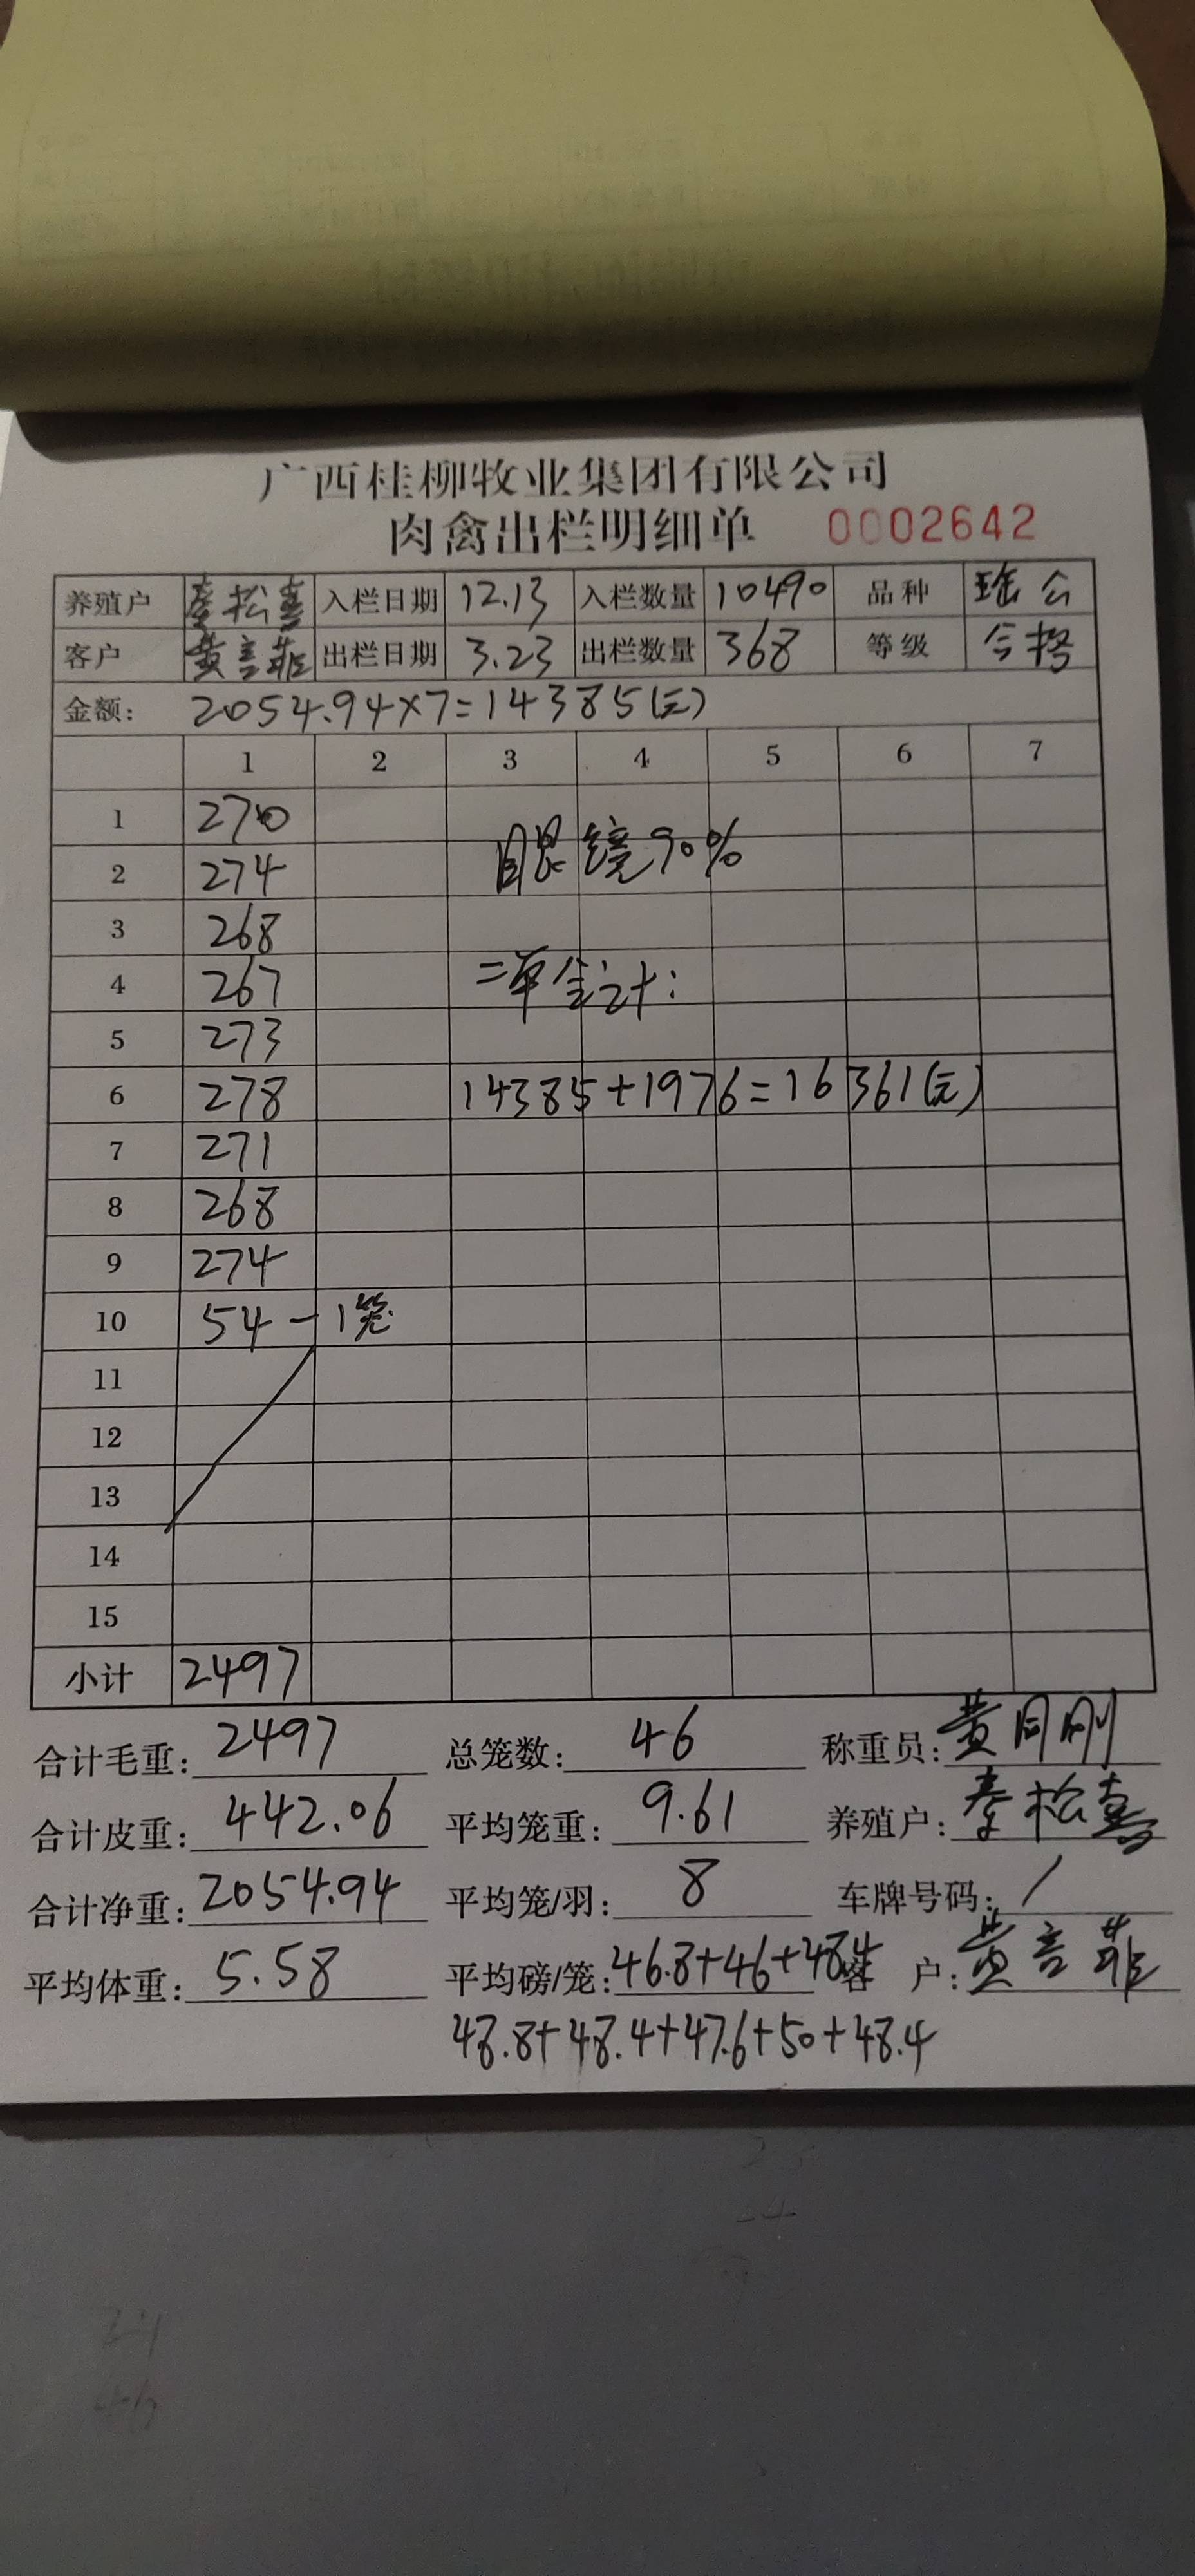 广西桂柳牧业集团有限公司
肉禽出栏明细单 0002642
养殖户 秦松喜 入栏日期 12.13 入栏数量 10490 品种 瑶公
客户 黄言菲 出栏日期 3.23 出栏数量 368 等级 合格
金额: 2054.94×7=14385(元)
1 2 3 4 5 6 7
1 270
2 274 眼镜90%
3 268
4 267 二单合计:
5 273
6 278 14385+1976=16361(元)
7 271
8 268
9 274
10 54-1笼
11
12
13
14
15
小计 2497
合计毛重: 2497 总笼数: 46 称重员: 黄月刚
合计皮重: 442.06 平均笼重: 9.61 养殖户: 秦松喜
合计净重: 2054.94 平均笼/羽: 8 车牌号码: /
平均体重: 5.58 平均磅/笼: 46.8+46+48.4 客户: 黄言菲
48.8+48.4+47.6+50+48.4